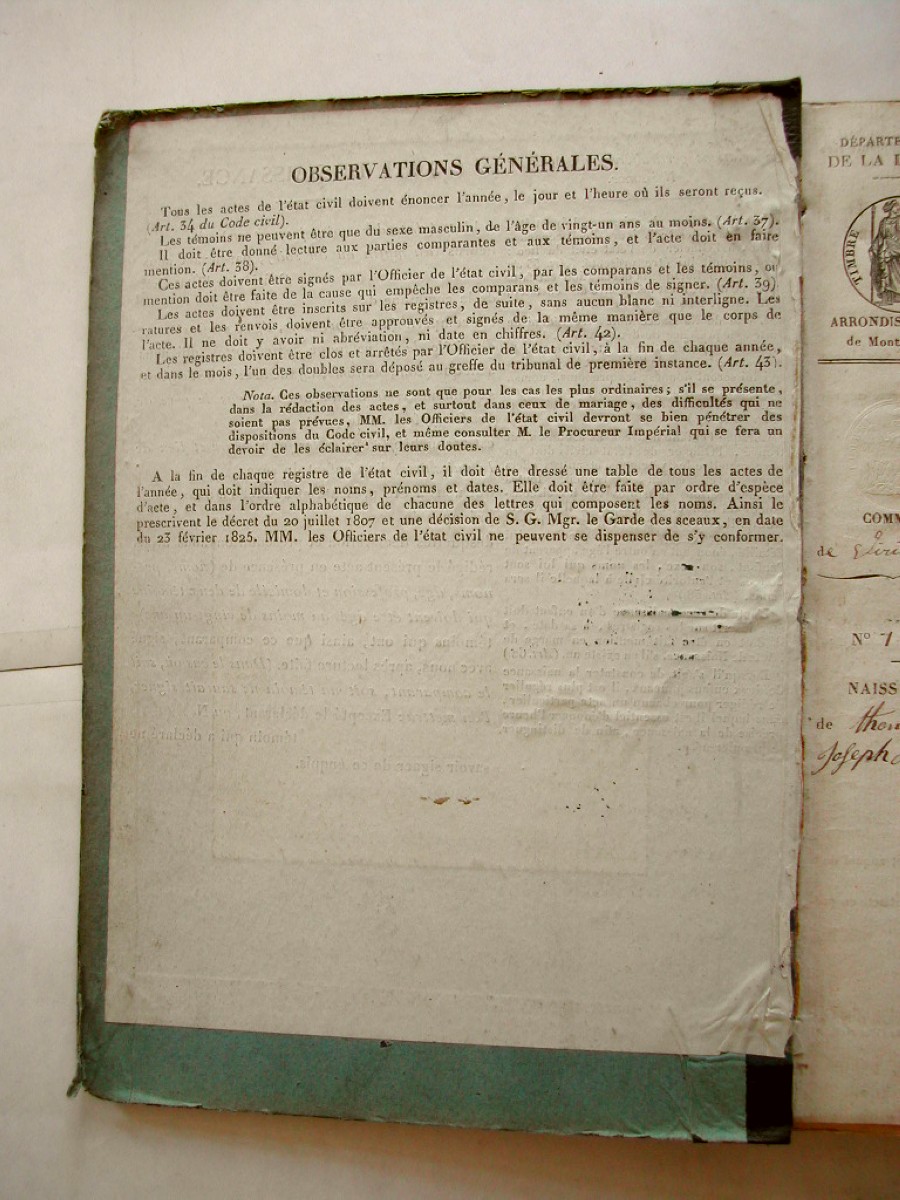 OBSERVATIONS GÉNÉRALES.
Tous les actes de l'état civil doivent énoncer l'année, le jour et l'heure où ils seront reçus.
(Art. 34 du Code civil).
Les témoins ne peuvent être que du sexe masculin, de l'âge de vingt-un ans au moins. (Art. 37).
Il doit être donné lecture aux parties comparantes et aux témoins, et l'acte doit en faire
mention. (Art. 38).
Ces actes doivent être signés par l'Officier de l'état civil, par les comparans et les témoins, ou
mention doit être faite de la cause qui empêche les comparans et les témoins de signer. (Art. 39)
Les actes doivent être inscrits sur les registres, de suite, sans aucun blanc ni interligne. Les
ratures et les renvois doivent être approuvés et signés de la même manière que le corps de
l'acte. Il ne doit y avoir ni abréviation, ni date en chiffres. (Art. 42).
Les registres doivent être clos et arrêtés par l'Officier de l'état civil, à la fin de chaque année,
et dans le mois, l'un des doubles sera déposé au greffe du tribunal de première instance. (Art. 43).
Nota. Ces observations ne sont que pour les cas les plus ordinaires; s'il se présente,
dans la rédaction des actes, et surtout dans ceux de mariage, des difficultés qui ne
soient pas prévues, MM. les Officiers de l'état civil devront se bien pénétrer des
dispositions du Code civil, et même consulter M. le Procureur Impérial qui se fera un
devoir de les éclairer sur leurs doutes.
A la fin de chaque registre de l'état civil, il doit être dressé une table de tous les actes de
l'année, qui doit indiquer les noms, prénoms et dates. Elle doit être faite par ordre d'espèce
d'acte, et dans l'ordre alphabétique de chacune des lettres qui composent les noms. Ainsi le
prescrivent le décret du 20 juillet 1807 et une décision de S. G. Mgr. le Garde des sceaux, en date
du 23 février 1825. MM. les Officiers de l'état civil ne peuvent se dispenser de s'y conformer.
DÉPARTE
DE LA
TIMBRE
ARRONDIS
de Mont
COMM
de
N° 1
NAISS
de thom
Joseph